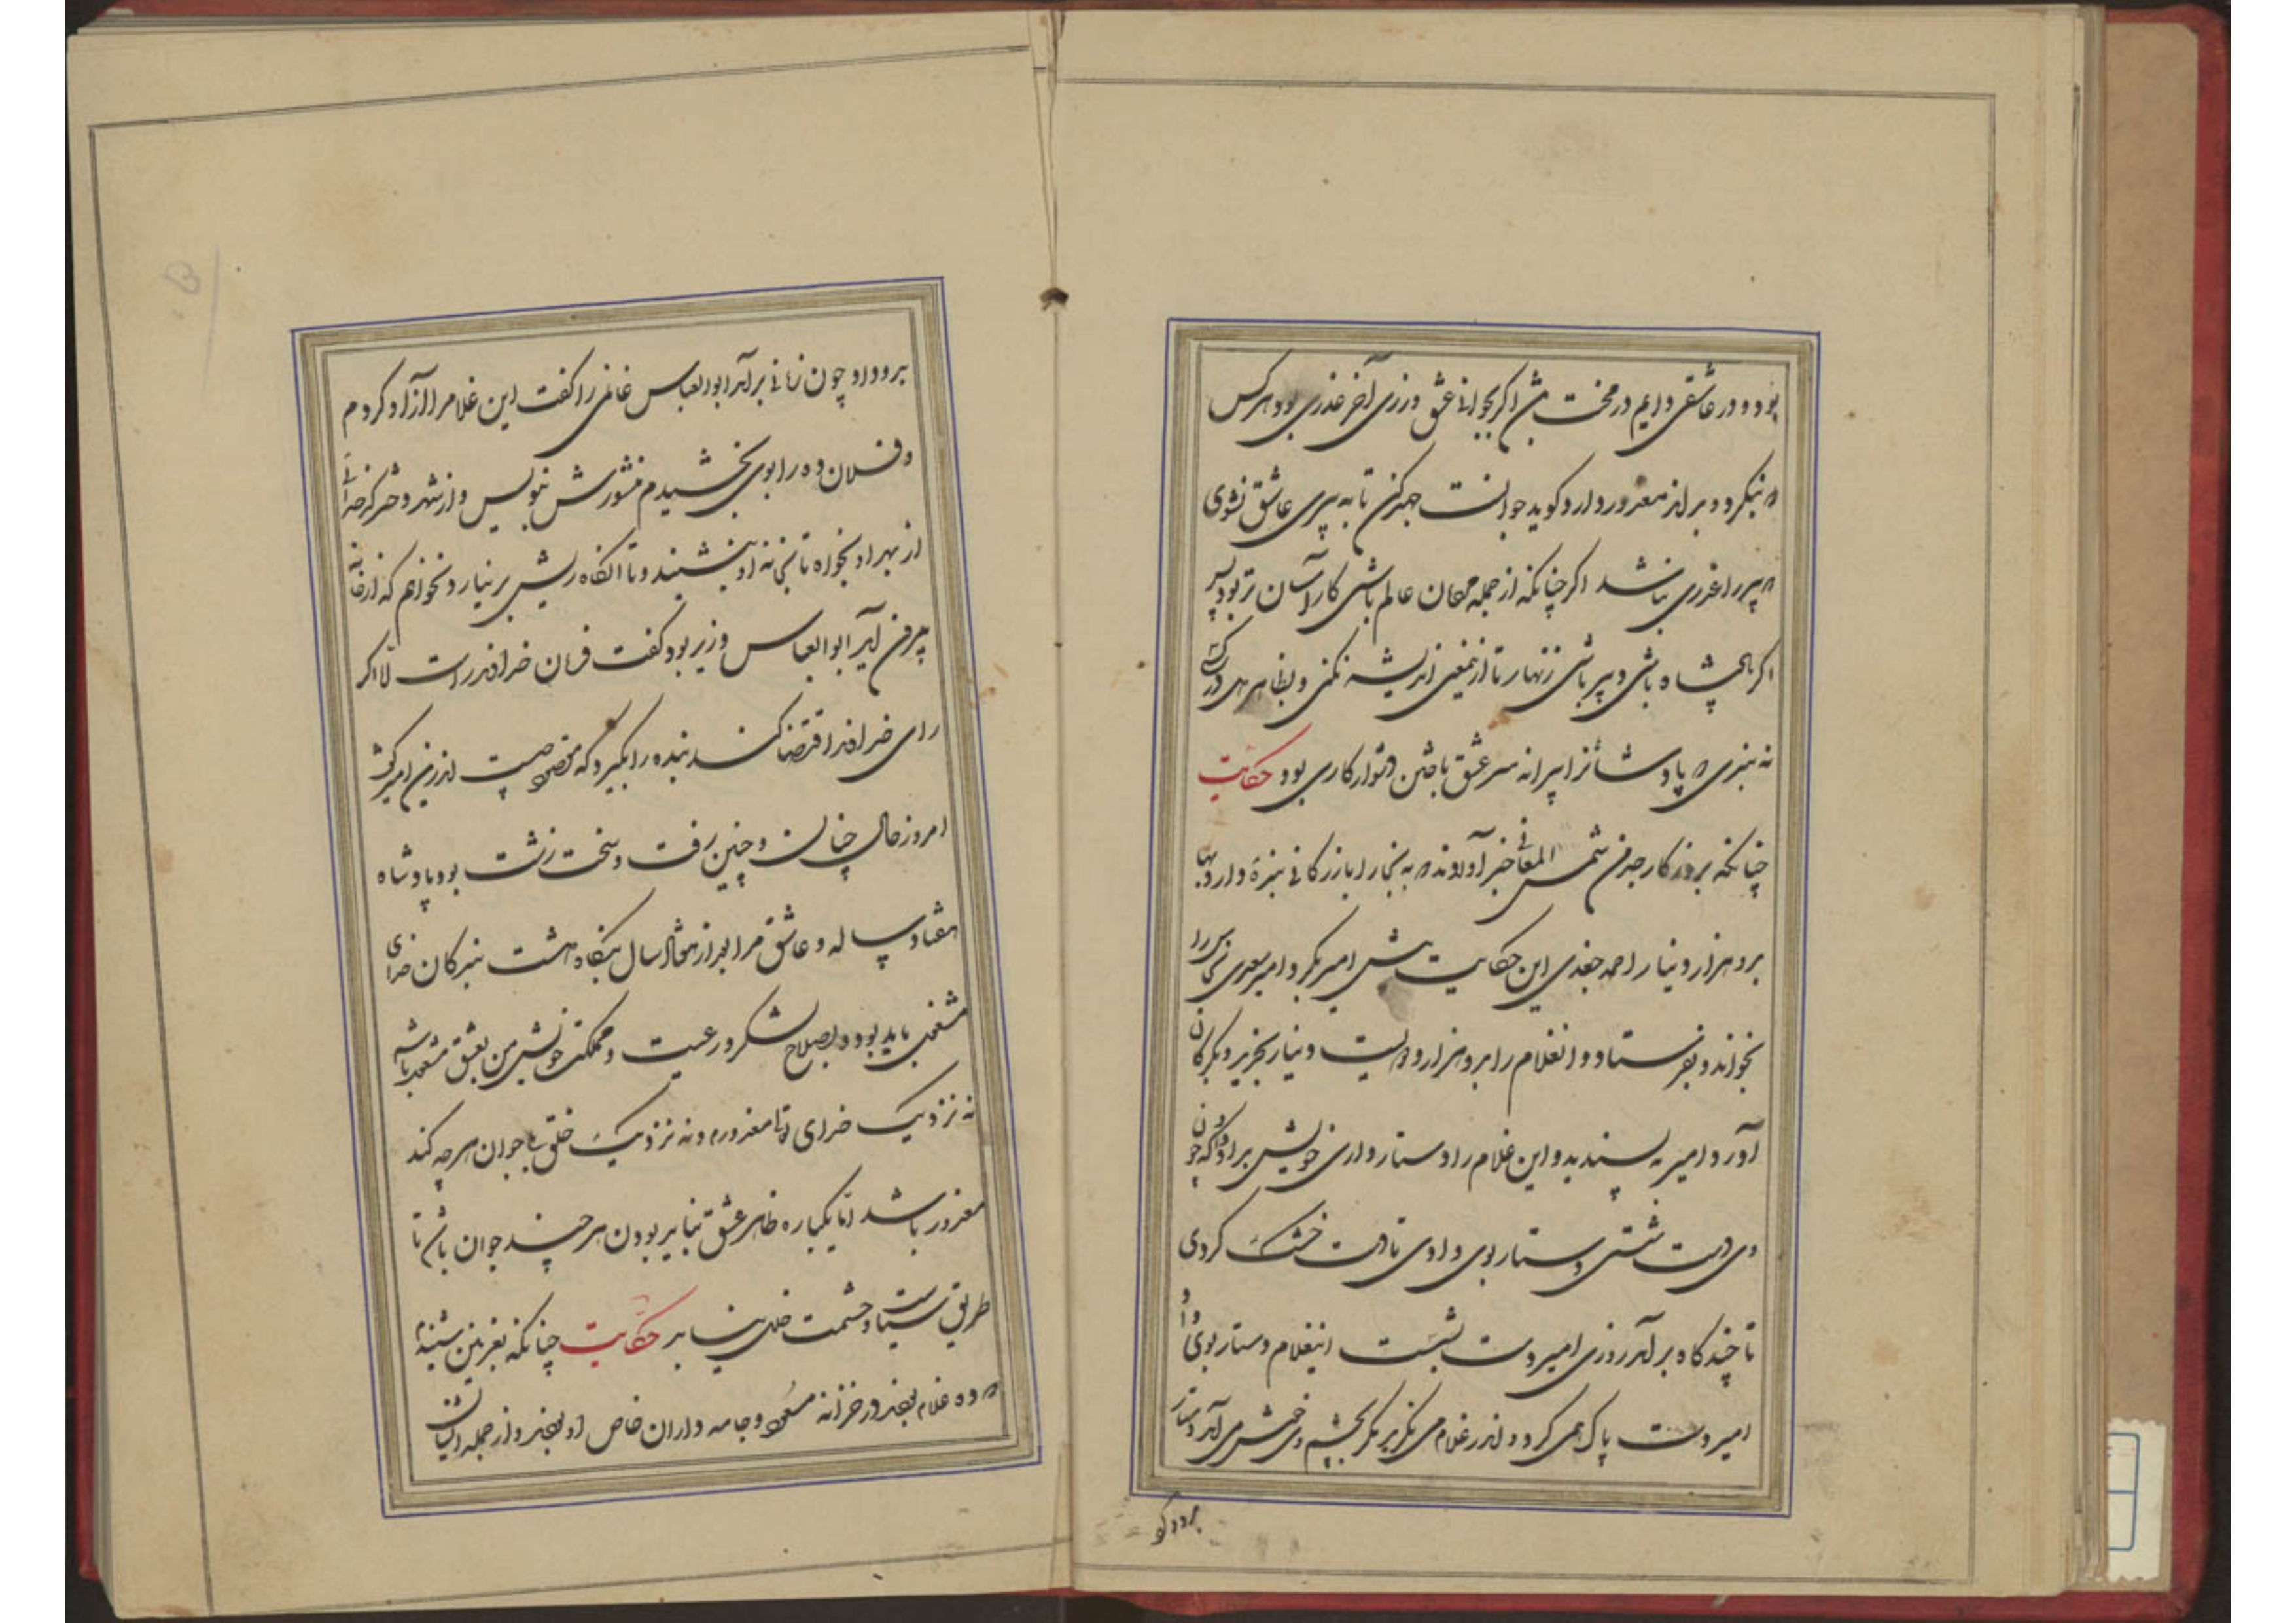 بود و در عاشقی دایم در محنت باش اگر بجوانی عشق ورزی آخر عذری بود هر کس
که بنگرد و بداند معذور دارد و گوید جوانست جهد کن تا به پیری عاشق نشوی
که پیر را عذری نباشد اگر چنانکه از جمله مردمان عالم باشی کار آسان تر بود پس
اگر پادشاه باشی و پیر باشی زنهار تا ازینمعنی اندیشه نکنی و بظاهر دل در کسی
نه بندی که پادشاه را پیرانه سر عشق باختن دشوار کاری بود حکایت
چنانکه بروزگار جد من شمس المعالی خبر آوردند که به بخارا بازرگانی بندهٔ دارد بها
بدو هزار دینار احمد سعدی این حکایت پیش امیر بکرد و امیر سعدی نخاس را
بخواند و بفرستاد و انغلام را بدو هزار و دویست دینار بخرید و بگرگان
آورد و امیر به پسندید و این غلام را دستار داری خویش بداد که چون
وی دست شستی دستار بوی دادی تا دست خشک کردی
تا چندگاه برآمد روزی امیر دست بشست اینغلام دستار بوی داد و
امیر دست پاک همی کرد و اندر غلام می نگرید مگر بچشم وی خوش می آمد دستار
بدو داد و چون زمانی برآمد ابوالعباس غانمی را گفت این غلام را آزاد کردم
و فلان ده را بوی بخشیدم منشورش بنویس و از شهر دختر کدخدائی
از بهر او بخواه تا بخانه او بنشیند و تا انگاه ریش بر نیارد نخواهم که از خانه
بیرون آید ابوالعباس وزیر بود گفت فرمان خداوند راست الا اگر
رای خداوند اقتضا کند بنده را بگوید که مقصود چیست اندرین امیر گفت
امروز حال چنان و چنین رفت و سخت زشت بود پادشاه
هفتاد ساله و عاشق مرا بعد از هفتاد سال بنگاه داشت بندگان خدای
مشغول باید بود و بصلاح لشکر و رعیت و مملکت خویش من بعشق مشغول باشم
نه نزدیک خدای تعالی معذورم و نه نزدیک خلق بلی جوان هر چه کند
معذور باشد اما یکباره ظاهر عشق نباید بودن هر چند جوان باشی تا
طریق سیاست و حشمت خلل نیابد حکایت چنانکه بغزنین شنیدم
که ده غلام بودند در خزانه مسعود و جامه داران خاص او بودند و از جمله ایشان